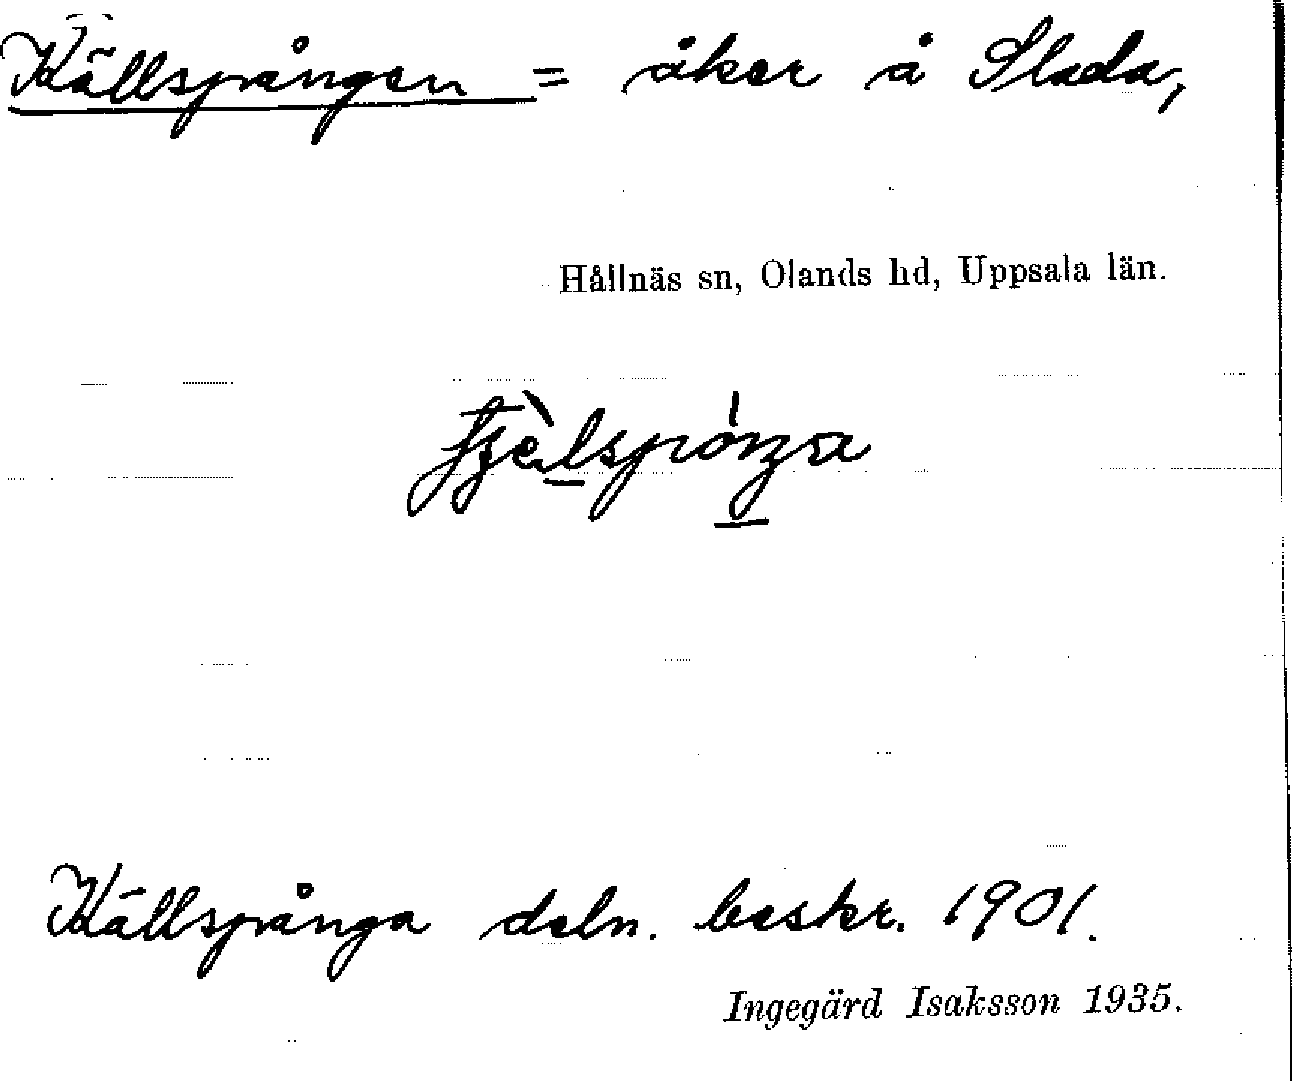 Källspången = åker å Slada,
Hållnäs sn, Olands hd, Uppsala län.
Källspånga deln. beskr. 1901.
Ingegärd Isaksson 1935.